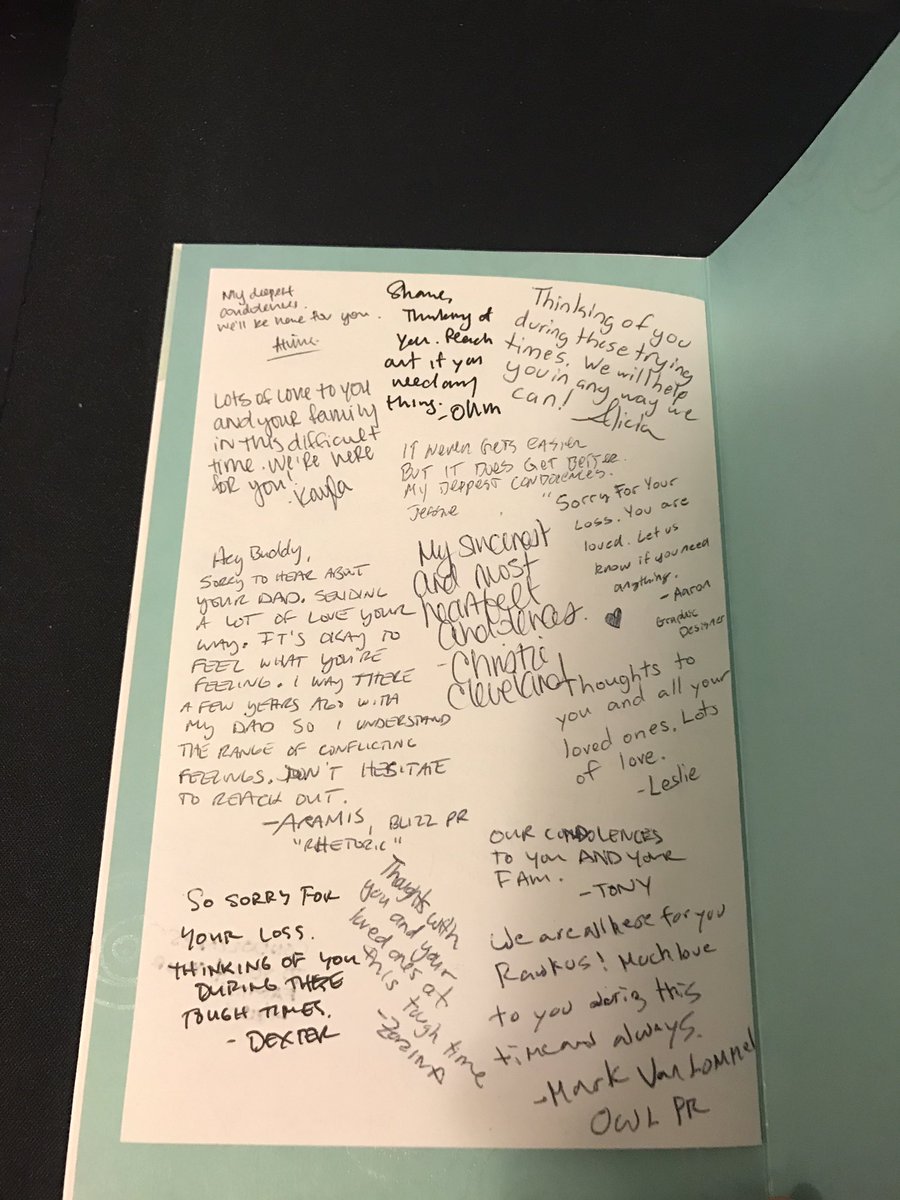 My deepest
condolences.
We'll be here for you.
Shane,
Thinking of
you. Reach
out if you
need any
thing.
-Ohm
Thinking of you
during these trying
times. We will help
you in any way we
can!
Alicia
Lots of love to you
and your family
in this difficult
time. We're here
for you!
-Kayla
It never gets easier
But it does get better.
My deepest condolences.
Jerome
"Sorry For Your
Loss. You are
loved. Let us
know if you need
anything.
- Aaron
Graphic
Designer
Hey Buddy,
SORRY TO HEAR ABOUT
YOUR DAD. SENDING
A LOT OF LOVE YOUR
WAY. IT'S OKAY TO
FEEL WHAT YOU'RE
FEELING. I WAY THERE
A FEW YEARS AGO WITH
MY DAD SO I UNDERSTAND
THE RANGE OF CONFLICTING
FEELINGS. DON'T HESITATE
TO REACH OUT.
-ARAMIS, BLIZZ PR
"RHETORIC"
My sincerest
and most
heartfelt
condolences.
-Christie
Cleveland
Thoughts to
you and all your
loved ones. Lots
of love.
-Leslie
OUR CONDOLENCES
TO YOU AND YOUR
FAM.
-TONY
SO SORRY FOR
YOUR LOSS.
THINKING OF YOU
DURING THESE
TOUGH TIMES.
- DEXTER
Thoughts with
you and your
loved ones at
this tough time
We are all here for you
Rawkus! Much love
to you during this
time and always.
-Mark Van Lommel
OWL PR